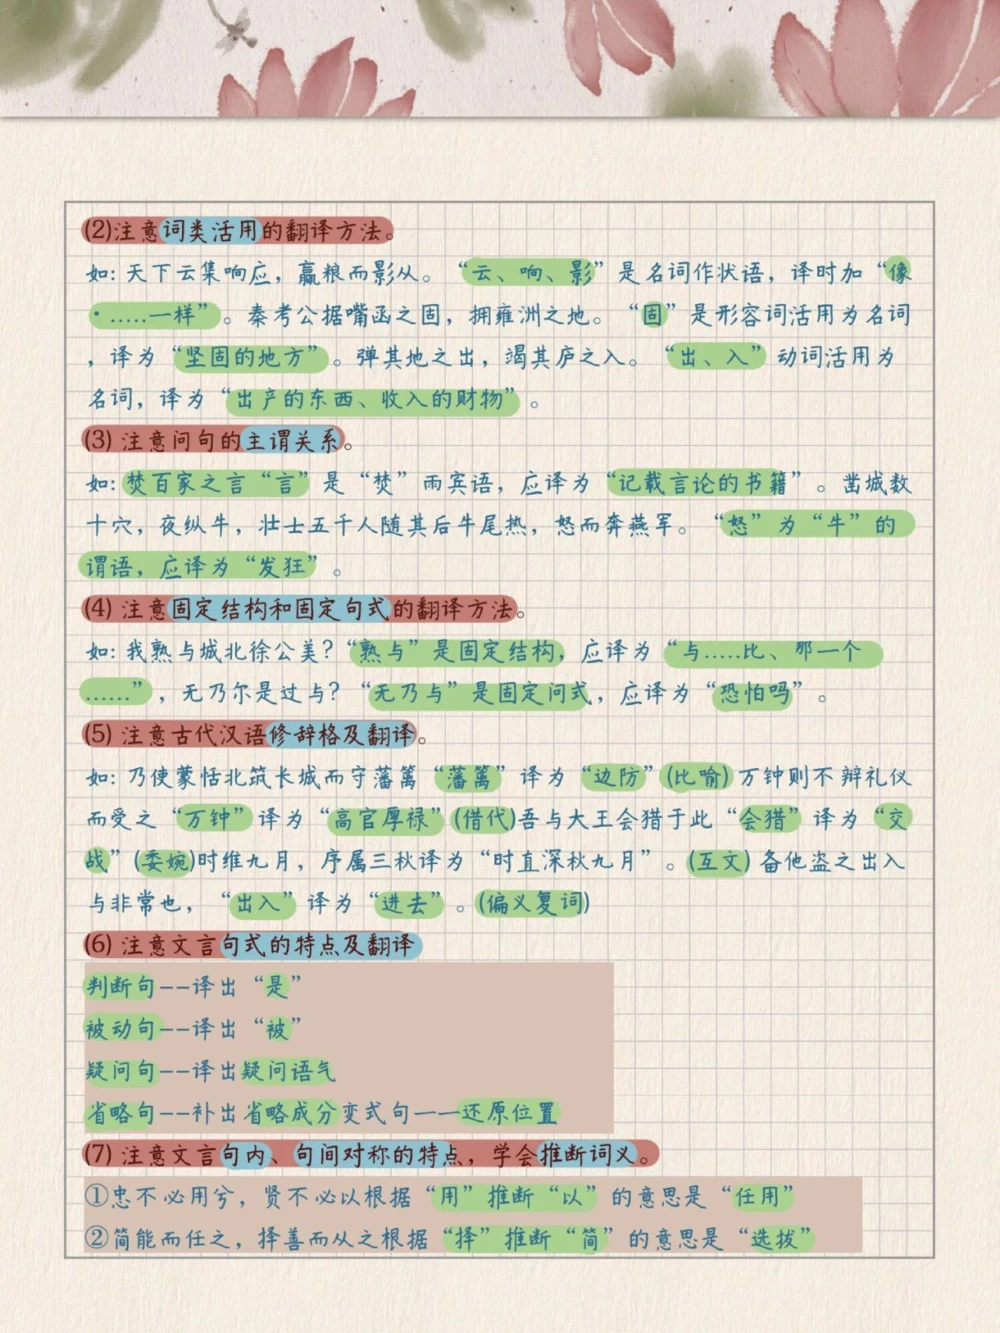 (2)注意词类活用的翻译方法。
如: 天下云集响应，赢粮而影从。“云、响、影”是名词作状语，译时加“像
·……一样”。秦考公据嘴函之固，拥雍洲之地。“固”是形容词活用为名词
，译为“坚固的地方”。弹其地之出，竭其庐之入。“出、入”动词活用为
名词，译为“出产的东西、收入的财物”。
(3) 注意问句的主谓关系。
如: 焚百家之言“言”是“焚”雨宾语，应译为“记载言论的书籍”。凿城数
十穴，夜纵牛，壮士五千人随其后牛尾热，怒而奔燕军。“怒”为“牛”的
谓语，应译为“发狂”。
(4) 注意固定结构和固定句式的翻译方法。
如: 我熟与城北徐公美?“熟与”是固定结构，应译为“与.....比、那一个
......”，无乃尔是过与?“无乃与”是固定问式，应译为“恐怕吗”。
(5) 注意古代汉语修辞格及翻译。
如: 乃使蒙恬北筑长城而守藩篱“藩篱”译为“边防”(比喻)万钟则不辩礼仪
而受之“万钟”译为“高官厚禄”(借代)吾与大王会猎于此“会猎”译为“交
战”(委婉)时维九月，序属三秋译为“时直深秋九月”。(互文)备他盗之出入
与非常也，“出入”译为“进去”。(偏义复词)
(6) 注意文言句式的特点及翻译
判断句--译出“是”
被动句--译出“被”
疑问句--译出疑问语气
省略句--补出省略成分变式句——还原位置
(7) 注意文言句内、句间对称的特点，学会推断词义。
①忠不必用兮，贤不必以根据“用”推断“以”的意思是“任用”
②简能而任之，择善而从之根据“择”推断“简”的意思是“选拔”